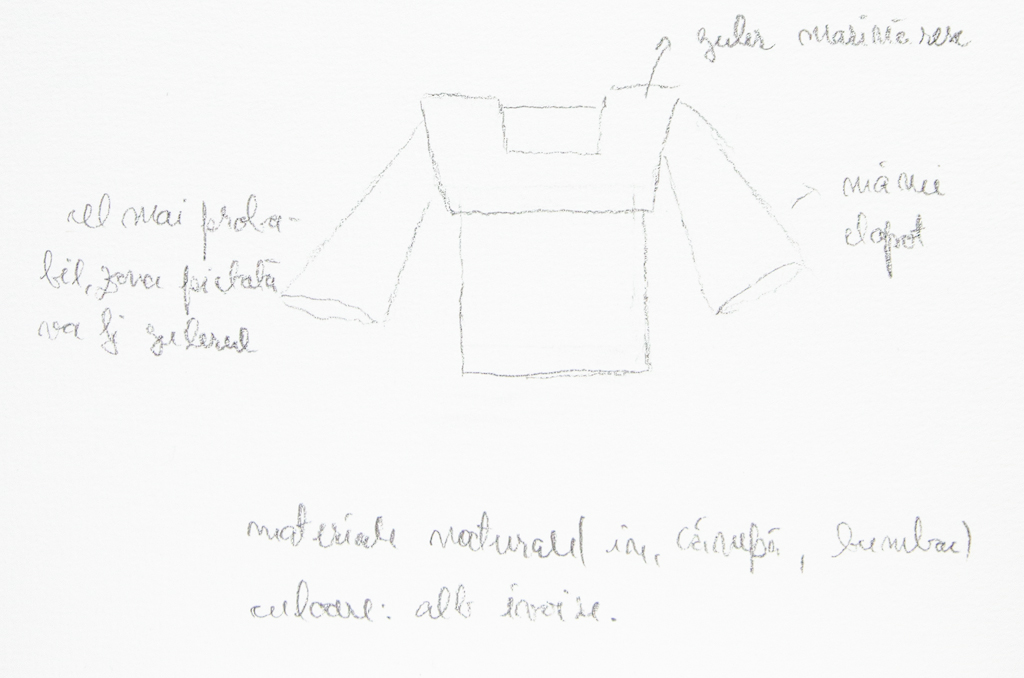 guler marinăresc
mâneci
clopot
cel mai proba-
bil, zona pictată
va fi gulerul
materiale naturale (in, cânepă, bumbac)
culoare: alb ivoire.